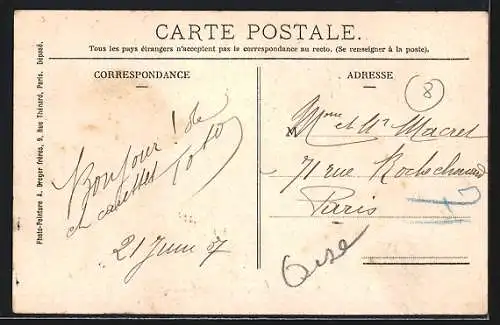 CARTE POSTALE.
Tous les pays étrangers n'acceptent pas la correspondance au recto. (Se renseigner à la poste).
CORRESPONDANCE
ADRESSE
Photo-Peinture A. Dreger frères, 9, Rue Thénard, Paris. Déposé.
Bonjour! de
Toto
et caresses
21 Juin 07
8
Mme et Mr Macret
71 rue Rochechouard
Paris
Oise